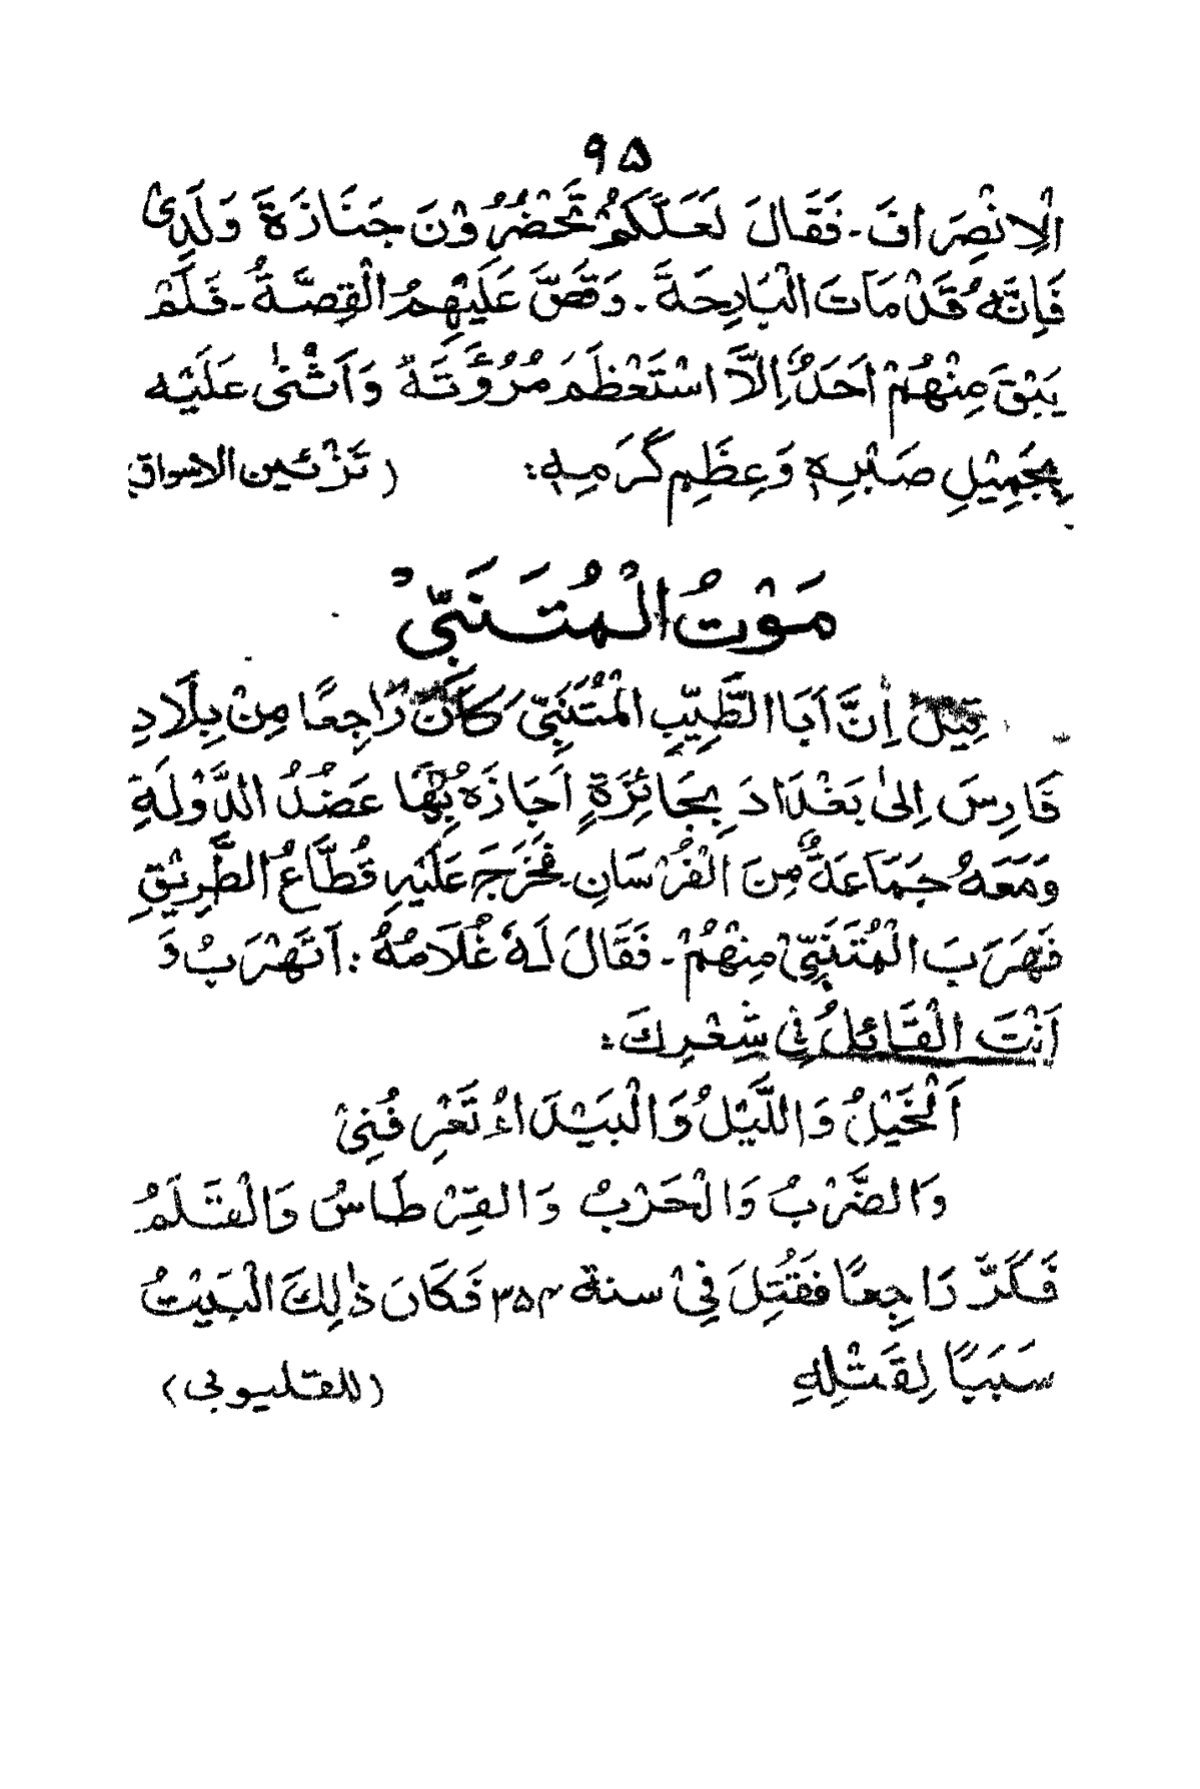 ۹۵
الْاِنْصِرَافَ۔ فَقَالَ لَعَلَّكُمْ تَحْضُرُوْنَ جَنَازَةَ وَلَدِیْ
فَاِنَّهُ قَدْ مَاتَ الْبَارِحَةَ۔ وَقَصَّ عَلَيْهِمُ الْقِصَّةَ۔ فَلَمْ
يَبْقَ مِنْهُمْ اَحَدٌ اِلَّا اسْتَعْظَمَ مُرُوْءَتَهٗ وَاَثْنٰى عَلَيْهِ
بِجَمِيْلِ صَبْرِهٖ وَعِظَمِ كَرَمِهٖ: (تَزْئِيْن الاسواق)
مَوْتُ الْمُتَنَبِّیْ
قِيْلَ اِنَّ اَبَا الطَّيِّبِ الْمُتَنَبِّیَّ كَانَ رَاجِعًا مِنْ بِلَادِ
فَارِسَ اِلىٰ بَغْدَادَ بِجَائِزَةٍ اَجَازَهُ بِهَا عَضُدُ الدَّوْلَةِ
وَمَعَهُ جَمَاعَةٌ مِنَ الْفُرْسَانِ۔ فَخَرَجَ عَلَيْهِ قُطَّاعُ الطَّرِيْقِ
فَهَرَبَ الْمُتَنَبِّیْ مِنْهُمْ۔ فَقَالَ لَهٗ غُلَامُهُ: اَتَهْرَبُ وَ
اَنْتَ الْقَائِلُ فِیْ شِعْرِكَ:
اَلْخَيْلُ وَاللَّيْلُ وَالْبَيْدَاءُ تَعْرِفُنِیْ
وَالضَّرْبُ وَالْحَرْبُ وَالْقِرْطَاسُ وَالْقَلَمُ
فَكَرَّ رَاجِعًا فَقُتِلَ فِیْ سنة ۳۵۴ فَكَانَ ذٰلِكَ الْبَيْتُ
سَبَبًا لِقَتْلِهِ (للقليوبی)